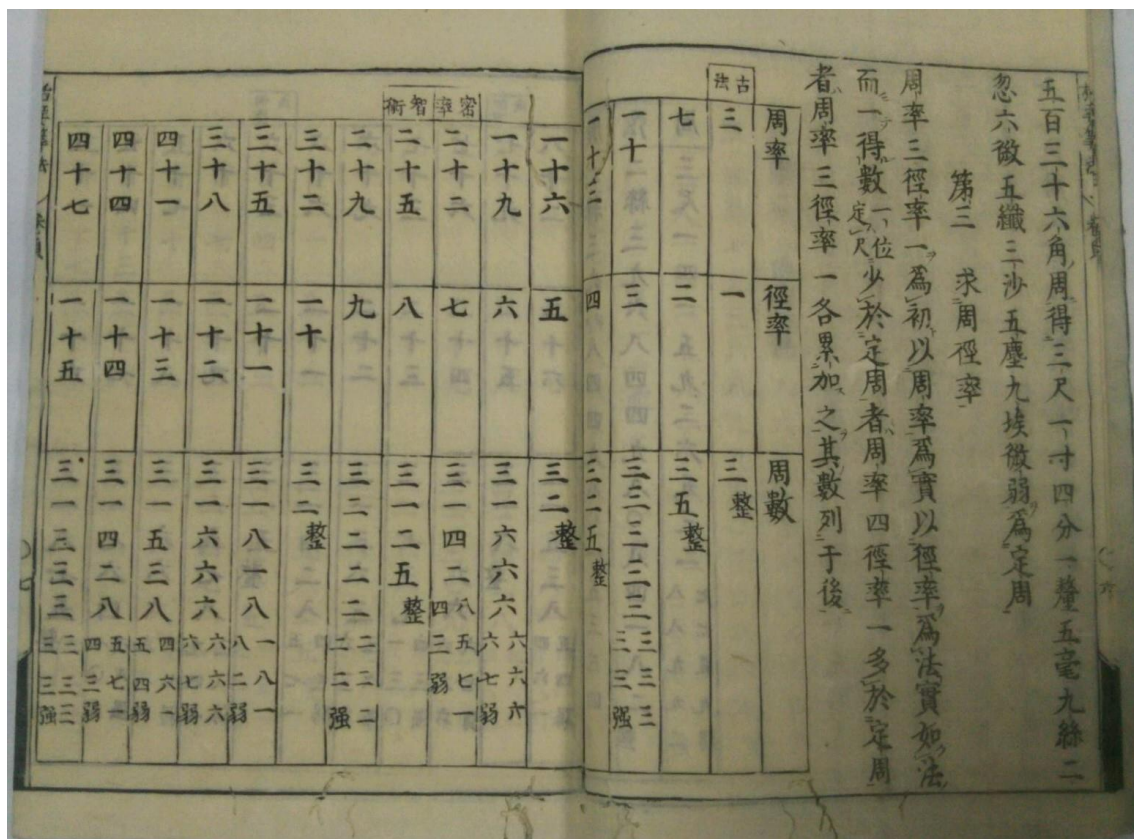 五百三十六角周得三尺一寸四分一釐五毫九絲二
忽六微五纖三沙五塵九埃微弱爲定周
第三 求周徑率
周率三徑率一爲初以周率爲實以徑率爲法實如法
而一得數一位定尺少於定周者周率四徑率一多於定周
者周率三徑率一各累加之其數列于後
周率 徑率 周數
古法 三 一 三整
七 二 三五整
一十 三 三三三三三三三三三三强
一十三 四 三二五整
一十六 五 三二整
一十九 六 三一六六六六六六六七弱
密率 二十二 七 三一四二八五七一四三弱
智術 二十五 八 三一二五整
二十九 九 三二二二二二二二二二强
三十二 一十 三二整
三十五 一十一 三一八一八一八一八二弱
三十八 一十二 三一六六六六六六六七弱
四十一 一十三 三一五三八四六一五四弱
四十四 一十四 三一四二八五七一四三弱
四十七 一十五 三一三三三三三三三三强